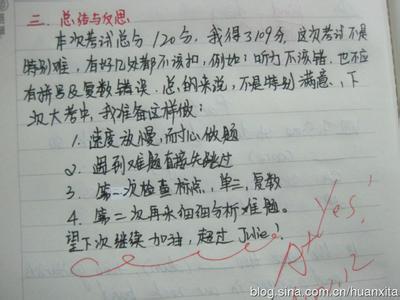 三. 总结与反思
本次考试总分120分, 我得了109分. 这次考试不是
特别难, 有好几处都不该扣, 例如: 听力不该错. 也不应
有拼写及复数错误. 总的来说, 不是特别满意, 下
次大考中, 我准备这样做:
1. 速度放慢, 耐心做题
2. 遇到难题直接先跳过
3. 第二次检查标点, 单三, 复数
4. 第二次再来细细分析难题。
望下次继续加油, 超过 Julie!
Yes!
A+
blog.sina.com.cn/huanxita